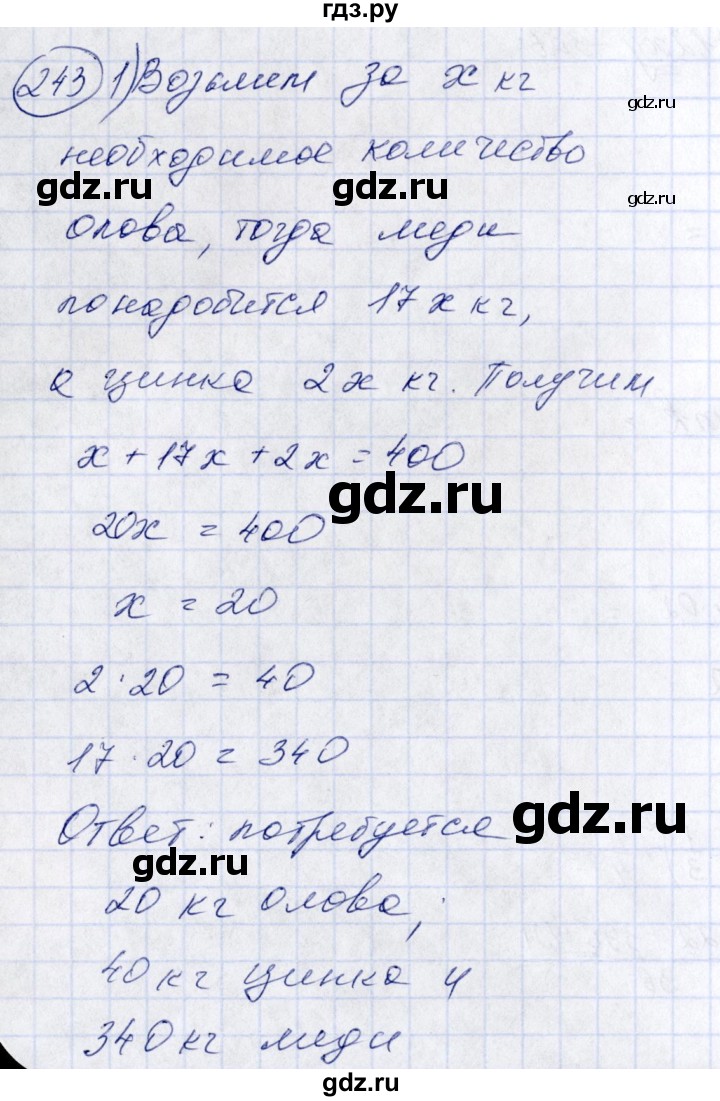 гдз.ру
243 1) Возьмем за x кг
gdz.ru
необходимое количество
gdz.ru gdz.ru gdz.ru
олова, тогда меди
понадобится 17x кг,
а цинка 2x кг. Получим
x + 17x + 2x = 400
gdz.ru
20x = 400
x = 20
2 · 20 = 40
17 · 20 = 340
Ответ: потребуется
gdz.ru
gdz.ru
20 кг олова;
40 кг цинка и
340 кг меди
gdz.ru